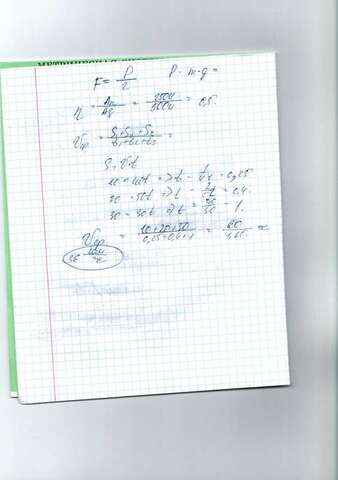 F = P/2 P = m·g =
η = Aп/Aз = 250И/500И = 0,5.
Vср = S₁+S₂+S₃/t₁+t₂+t₃ =
S = V·t
10 = 40t => t =
20 = 50t => t = 2/5 = 0,4.
30 = 30t => t = 30/30 = 1.
Vср = 10+20+30/0,25+0,4+1 = 60/1,65 ≈
36 км/ч